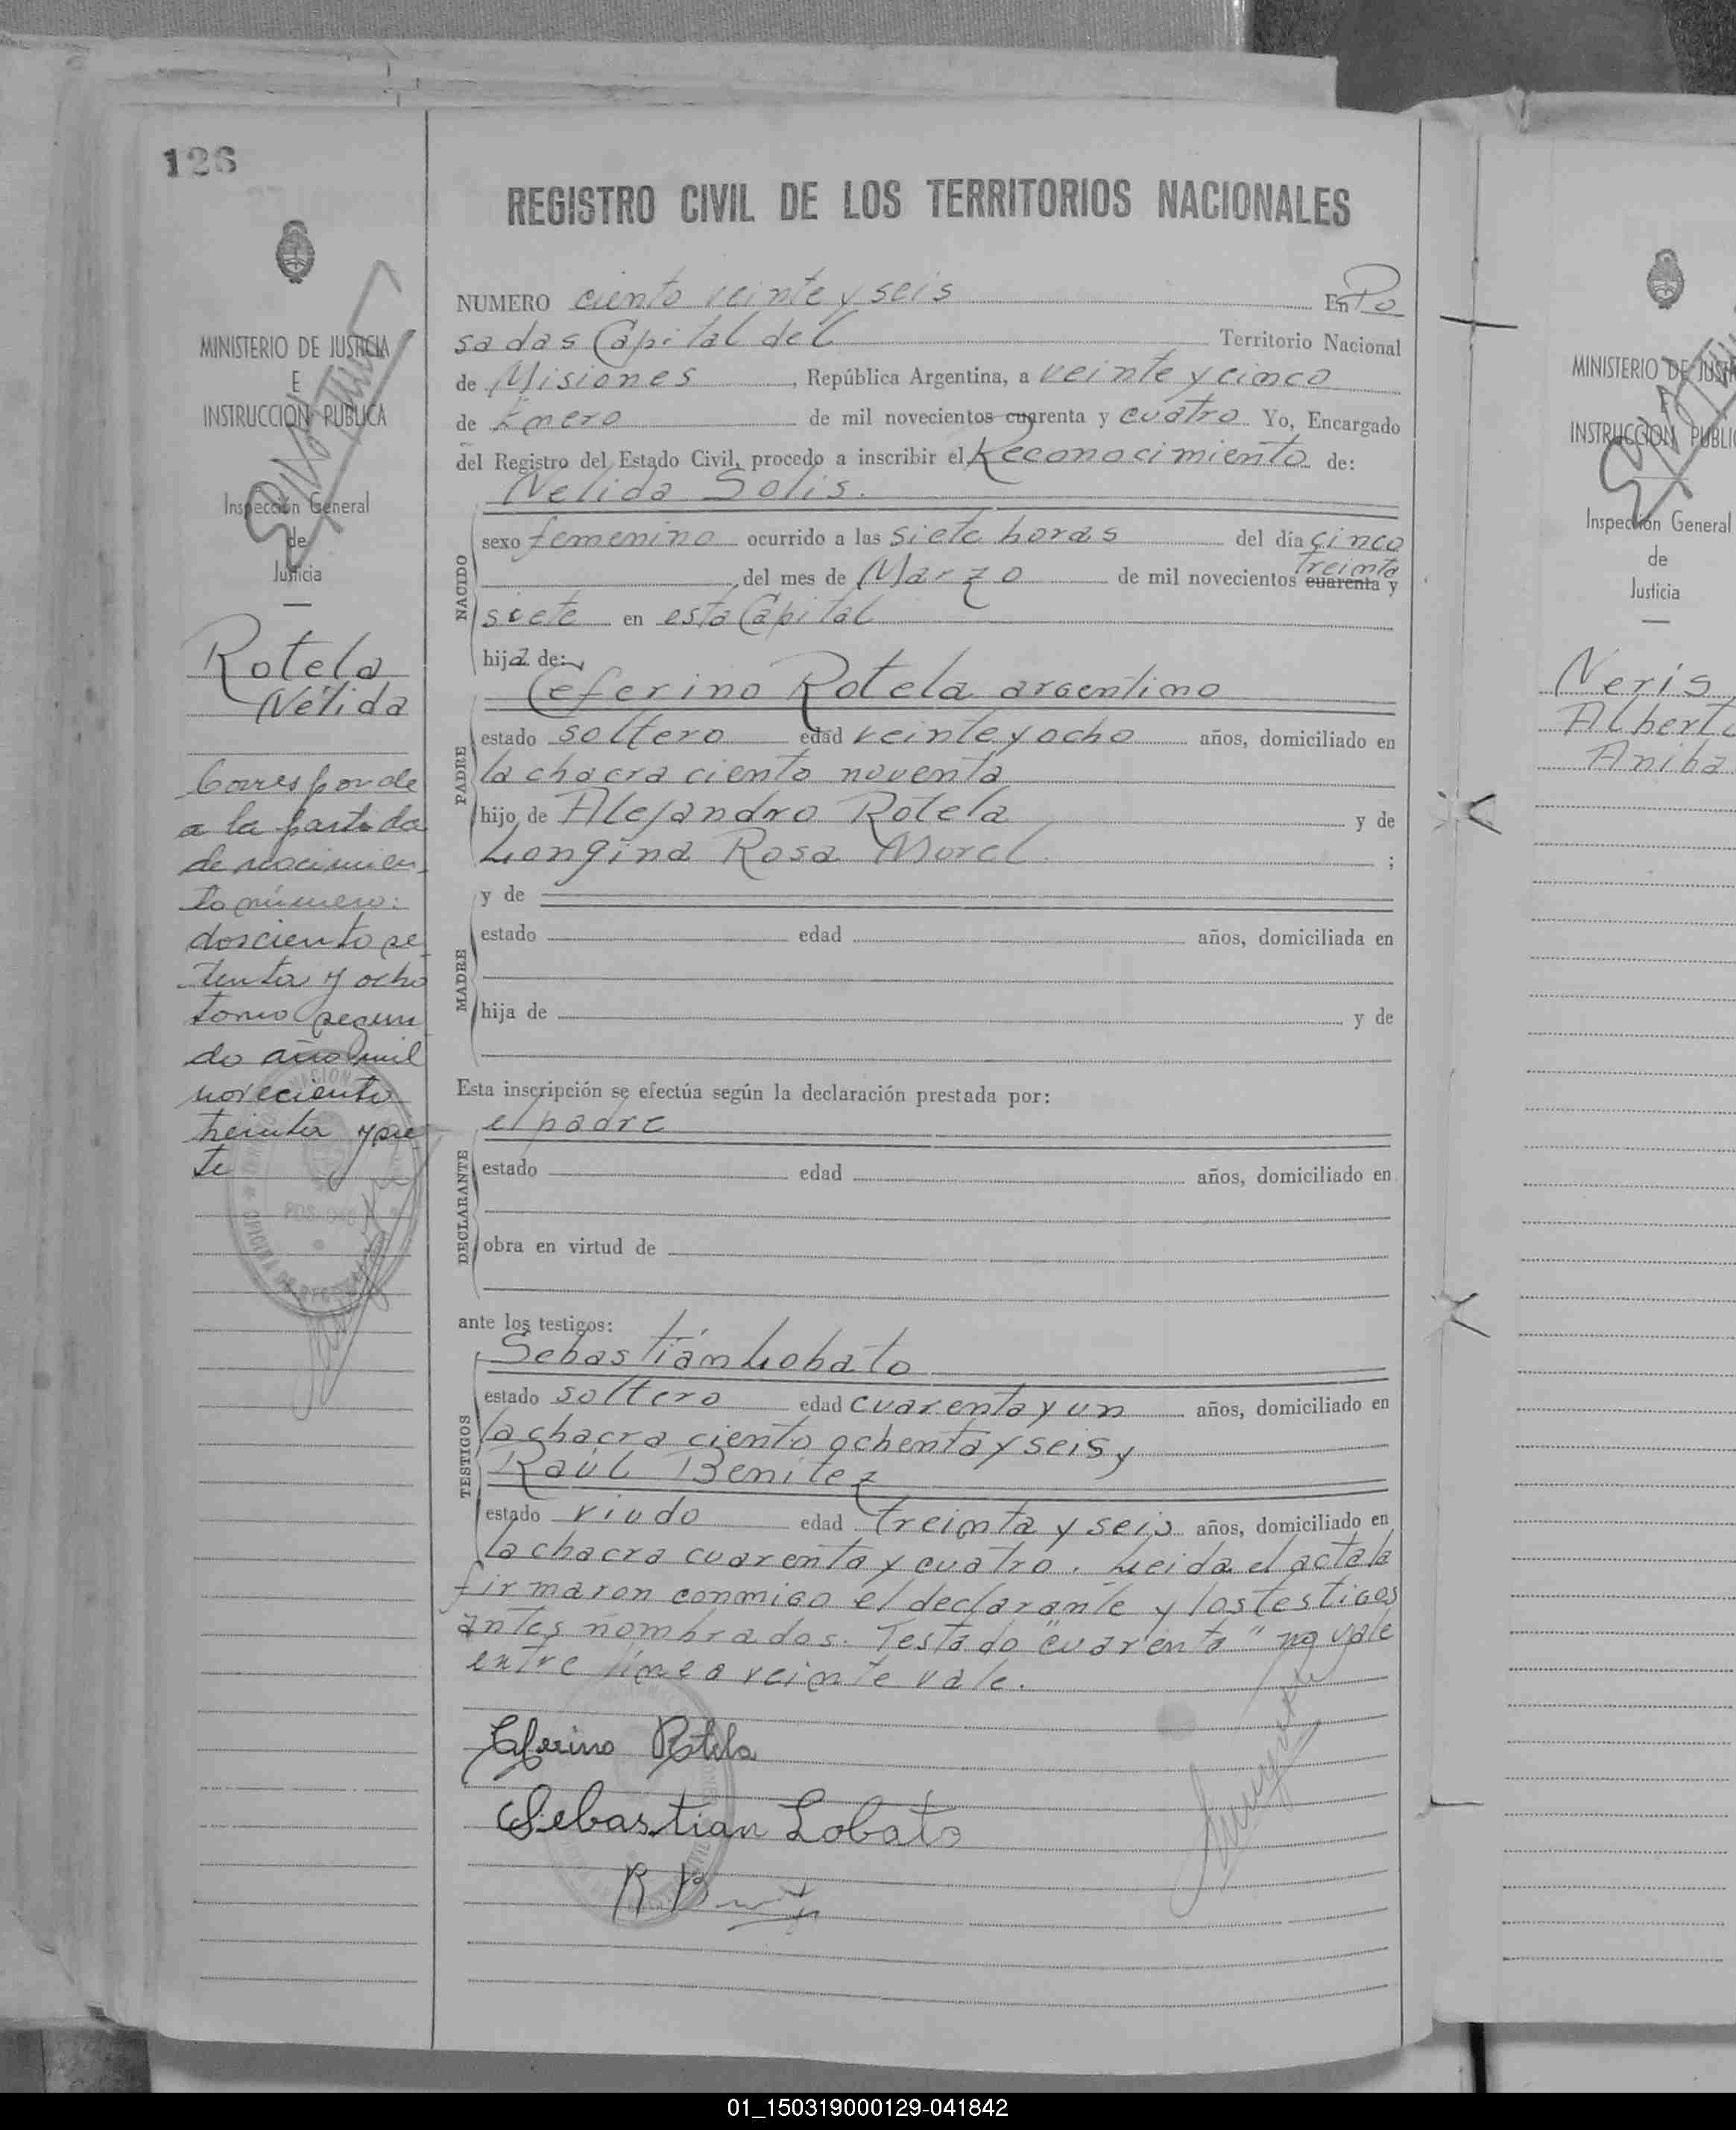 126
REGISTRO CIVIL DE LOS TERRITORIOS NACIONALES
MINISTERIO DE JUSTICIA
E
INSTRUCCION PUBLICA
Inspección General
de
Justicia
Rotela
Nélida
Corresponde
a la partida
de nacimien
to número:
dosciento se
tenta y ocho
tomo segun
do año mil
noveciento
treinta y sie
te
NUMERO ciento veinte y seis En Po
sadas Capital del Territorio Nacional
de Misiones, República Argentina, a veinte y cinco
de Enero de mil novecientos cuarenta y cuatro. Yo, Encargado
del Registro del Estado Civil, procedo a inscribir el Reconocimiento de:
Nelida Solis.
NACIDO
sexo femenino ocurrido a las siete horas del día cinco
treinta
del mes de Marzo de mil novecientos cuarenta y
siete en esta Capital
hija de:
Ceferino Rotela argentino
PADRE
estado soltero edad veinte y ocho años, domiciliado en
la chacra ciento noventa
hijo de Alejandro Rotela y de
Longina Rosa Morel. ;
y de
MADRE
estado edad años, domiciliada en
hija de y de
Esta inscripción se efectúa según la declaración prestada por:
el padre
DECLARANTE
estado edad años, domiciliado en
obra en virtud de
ante los testigos:
Sebastián Lobato
TESTIGOS
estado soltero edad cuarenta y un años, domiciliado en
la chacra ciento ochenta y seis y
Raúl Benitez
estado viudo edad treinta y seis años, domiciliado en
la chacra cuarenta y cuatro. Leida el acta la
firmaron conmigo el declarante y los testigos
antes nombrados. Testado "cuarenta" no vale
entre linea veinte vale.
Ceferino Rotela
Sebastian Lobato
R B
MINISTERIO DE
INSTRUCCION
Inspección General
de
Justicia
Neris
Albert
Aniba
01_150319000129-041842